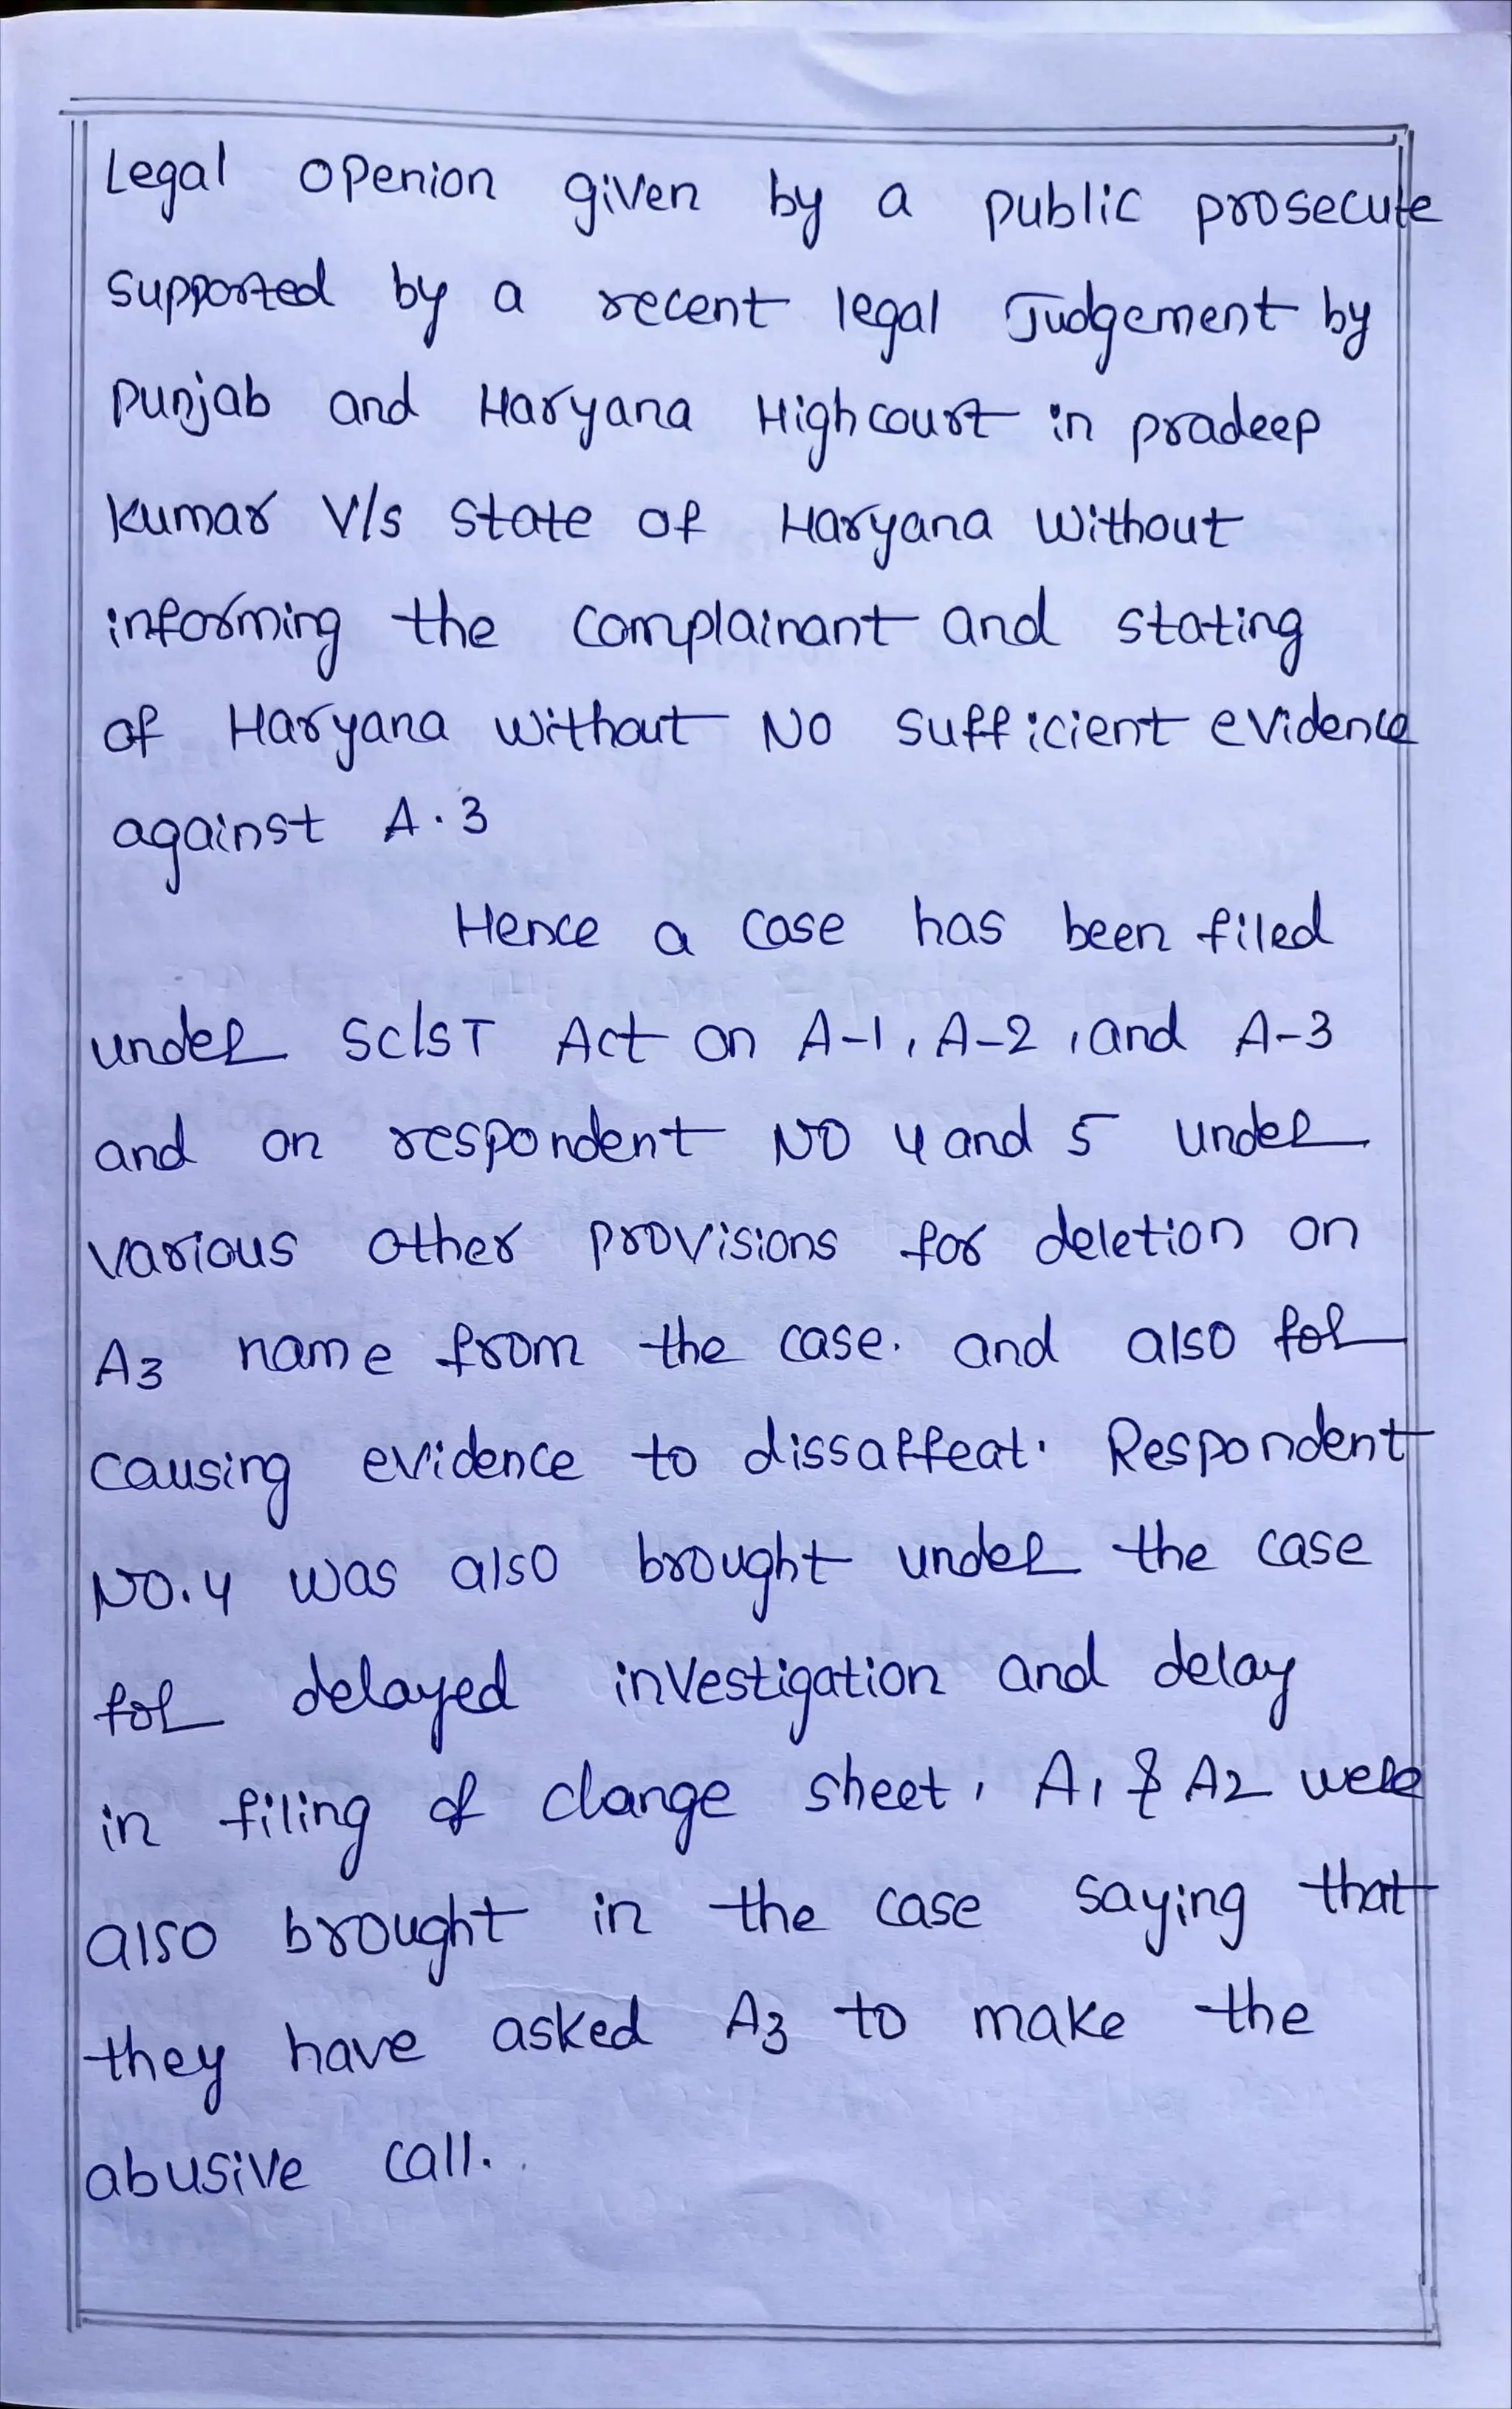 Legal openion given by a public prosecute
supported by a recent legal Judgement by
punjab and Haryana Highcourt in pradeep
kumar V/s state of Haryana without
informing the complainant and stating
of Haryana without NO sufficient evidence
against A.3
Hence a case has been filed
under SC/ST Act on A-1, A-2, and A-3
and on respondent NO 4 and 5 under
various other provisions for deletion on
A3 name from the case. and also for
causing evidence to dissaffeat. Respondent
NO.4 was also brought under the case
for delayed investigation and delay
in filing of clange sheet, A1 & A2 were
also brought in the case saying that
they have asked A3 to make the
abusive call.